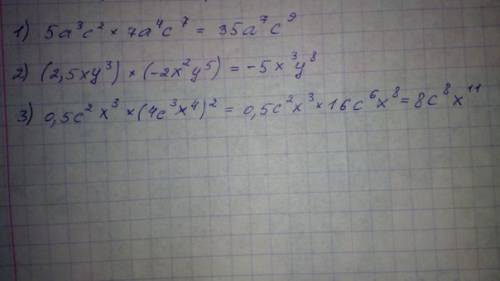 1) 5a³c² × 7a⁴c⁷ = 35a⁷c⁹
2) (2,5xy³) × (-2x²y⁵) = -5x³y⁸
3) 0,5c²x³ × (4c³x⁴)² = 0,5c²x³ × 16c⁶x⁸ = 8c⁸x¹¹